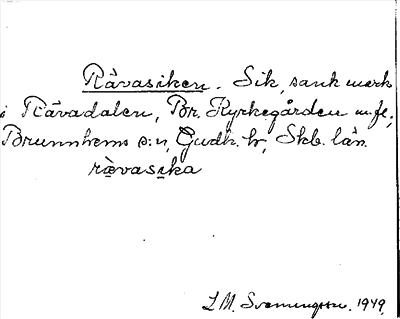 Rävasiken. Sik, sank mark
i Rävadalen, Br. Kyrkegården m.fl.,
Brunnhems s:n, Gudh. h., Skb. län.
rävasika
L M. Svenungsson. 1949.